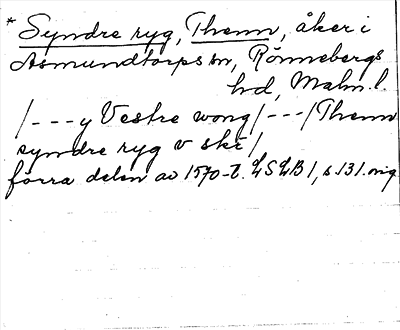 * Syndre ryg, Thenn, åker i
Asmundtorps sn, Rönnebergs
hd, Malm. l.
/- - - y Vestre wong/- - -/Thenn
syndre ryg v ski/
förra delen av 1570-t. LSLB 1, s. 131. orig